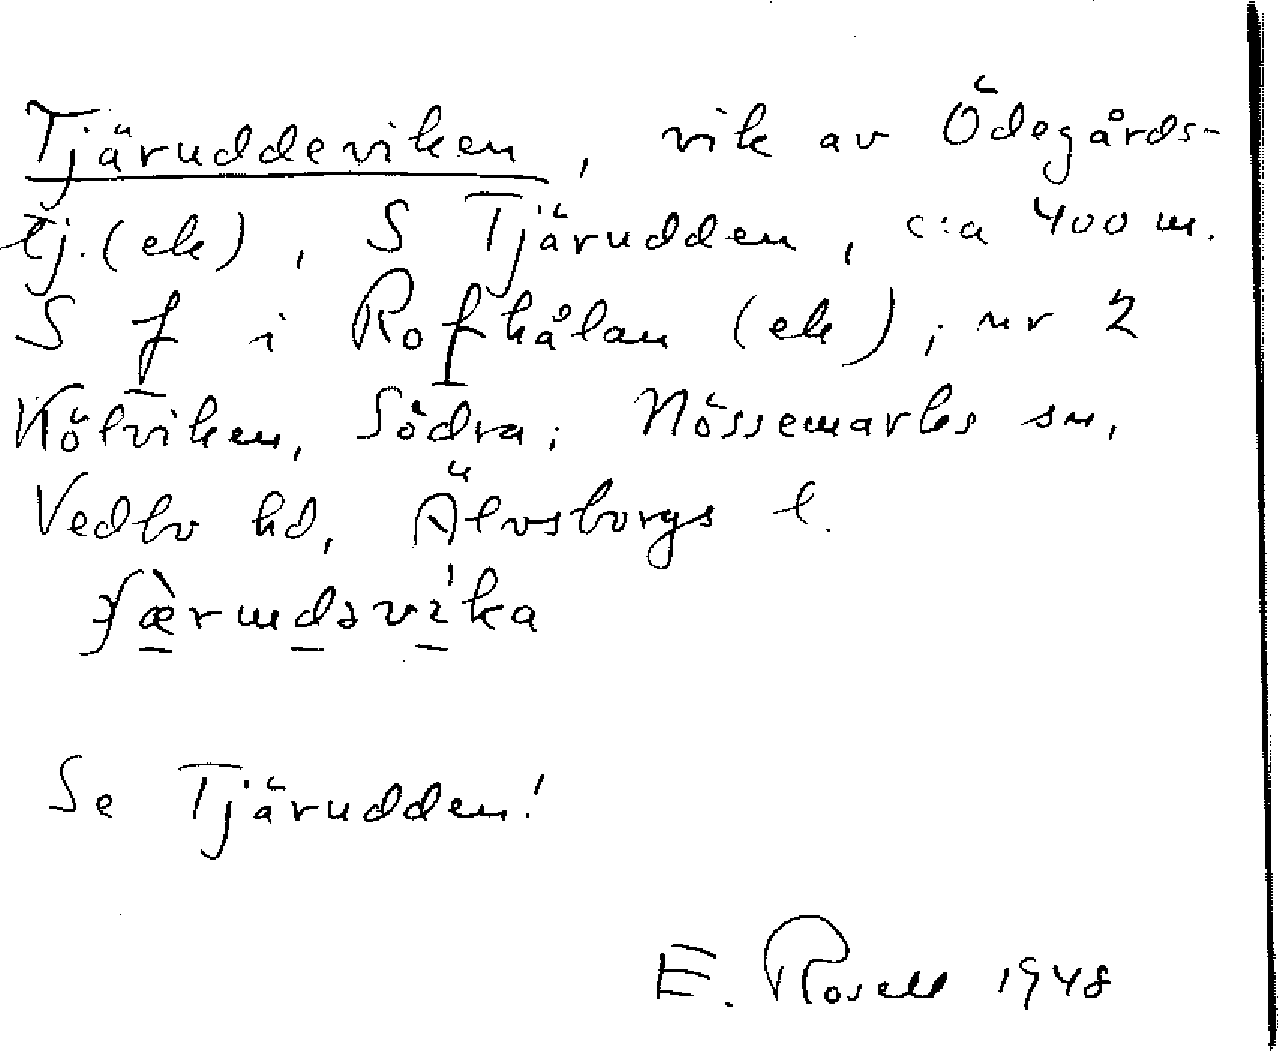 Tjäruddeviken, vik av Ödegårds-
tj. (ek), S Tjärudden, c:a 400 m.
S f i Rofkålan (ek); nr 2
Kölviken, Södra; Nössemarks sn,
Vedbo hd, Älvsborgs l.
Se Tjärudden!
E. Rosell 1948